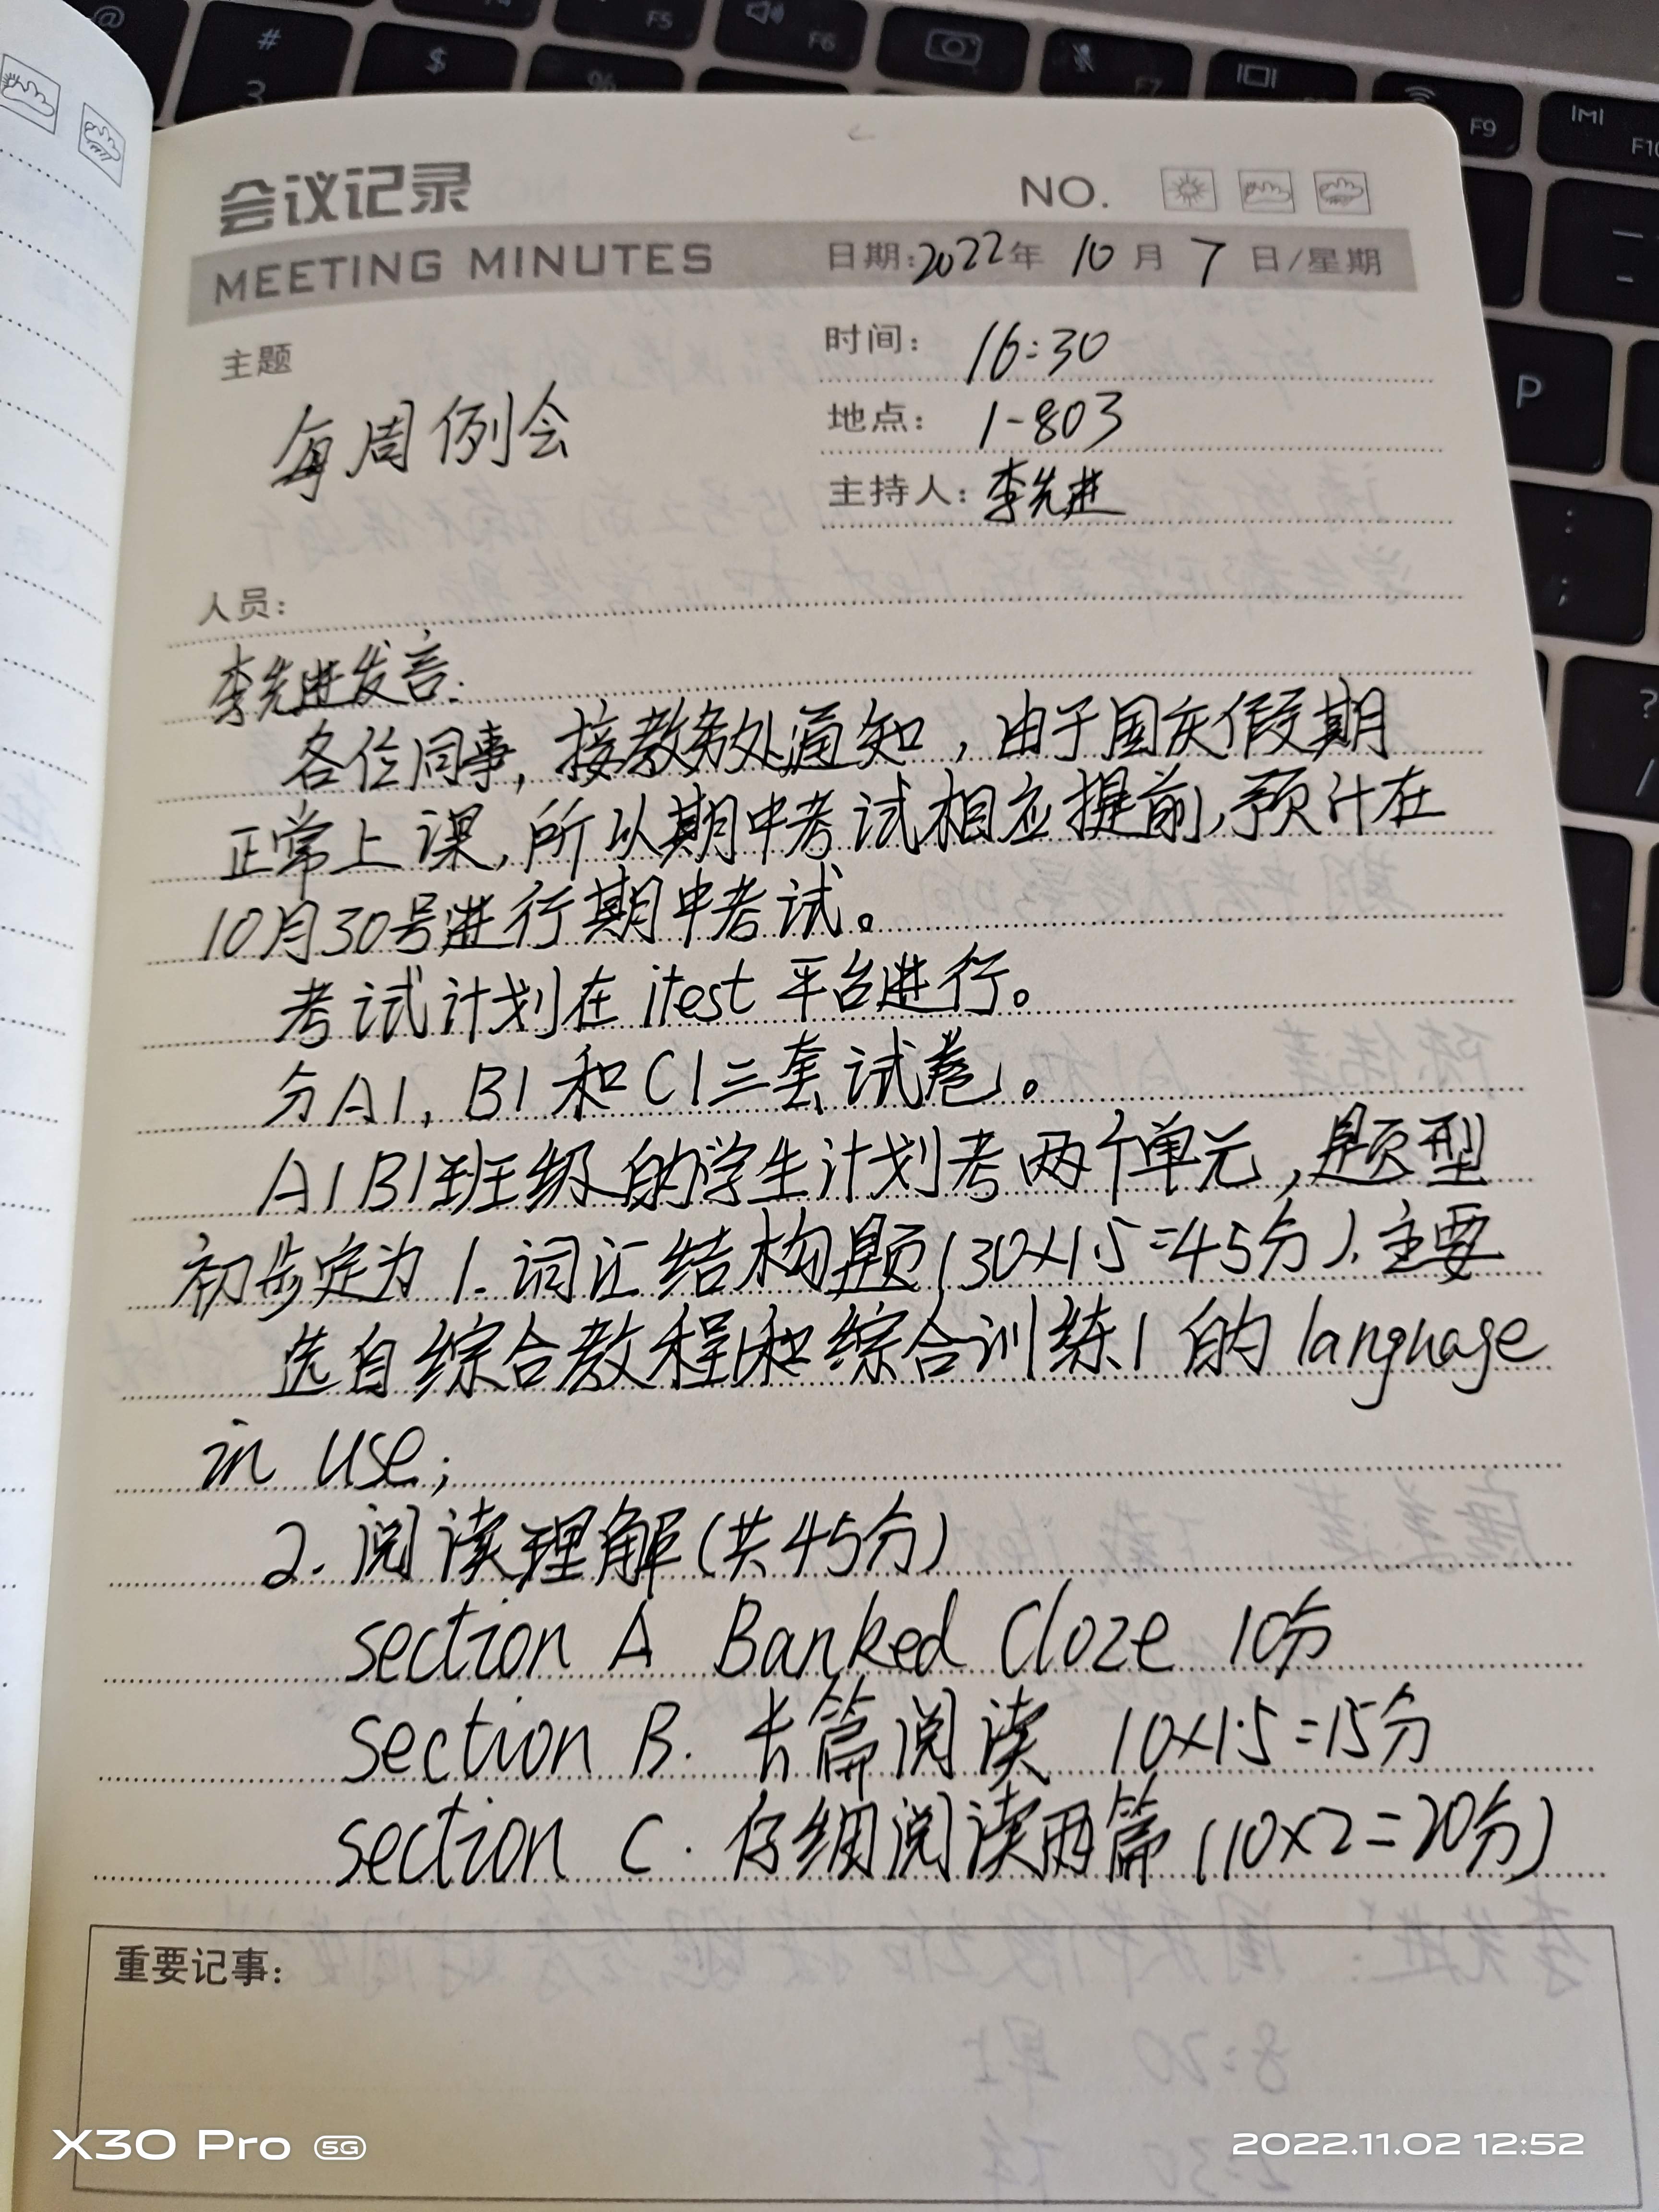 会议记录 NO.
MEETING MINUTES 日期:2022年 10月 7日/星期
主题
每周例会
时间: 16:30
地点: 1-803
主持人: 李先进
人员:
李先进发言:
各位同事, 接教务处通知, 由于国庆假期
正常上课, 所以期中考试相应提前, 预计在
10月30号进行期中考试。
考试计划在 itest 平台进行。
分A1, B1 和 C1三套试卷。
A1B1班级的学生计划考两个单元, 题型
初步定为 1. 词汇结构题(30×1.5=45分). 主要
选自综合教程和综合训练1 的 language
in use;
2. 阅读理解(共45分)
section A Banked Cloze 10分
section B. 长篇阅读 10×1.5=15分
section C. 仔细阅读两篇 (10×2=20分)
重要记事:
X30 Pro 5G
2022.11.02 12:52
@
#
3
$
%
F5
F6
F7
F9
F10
P
;
?
/